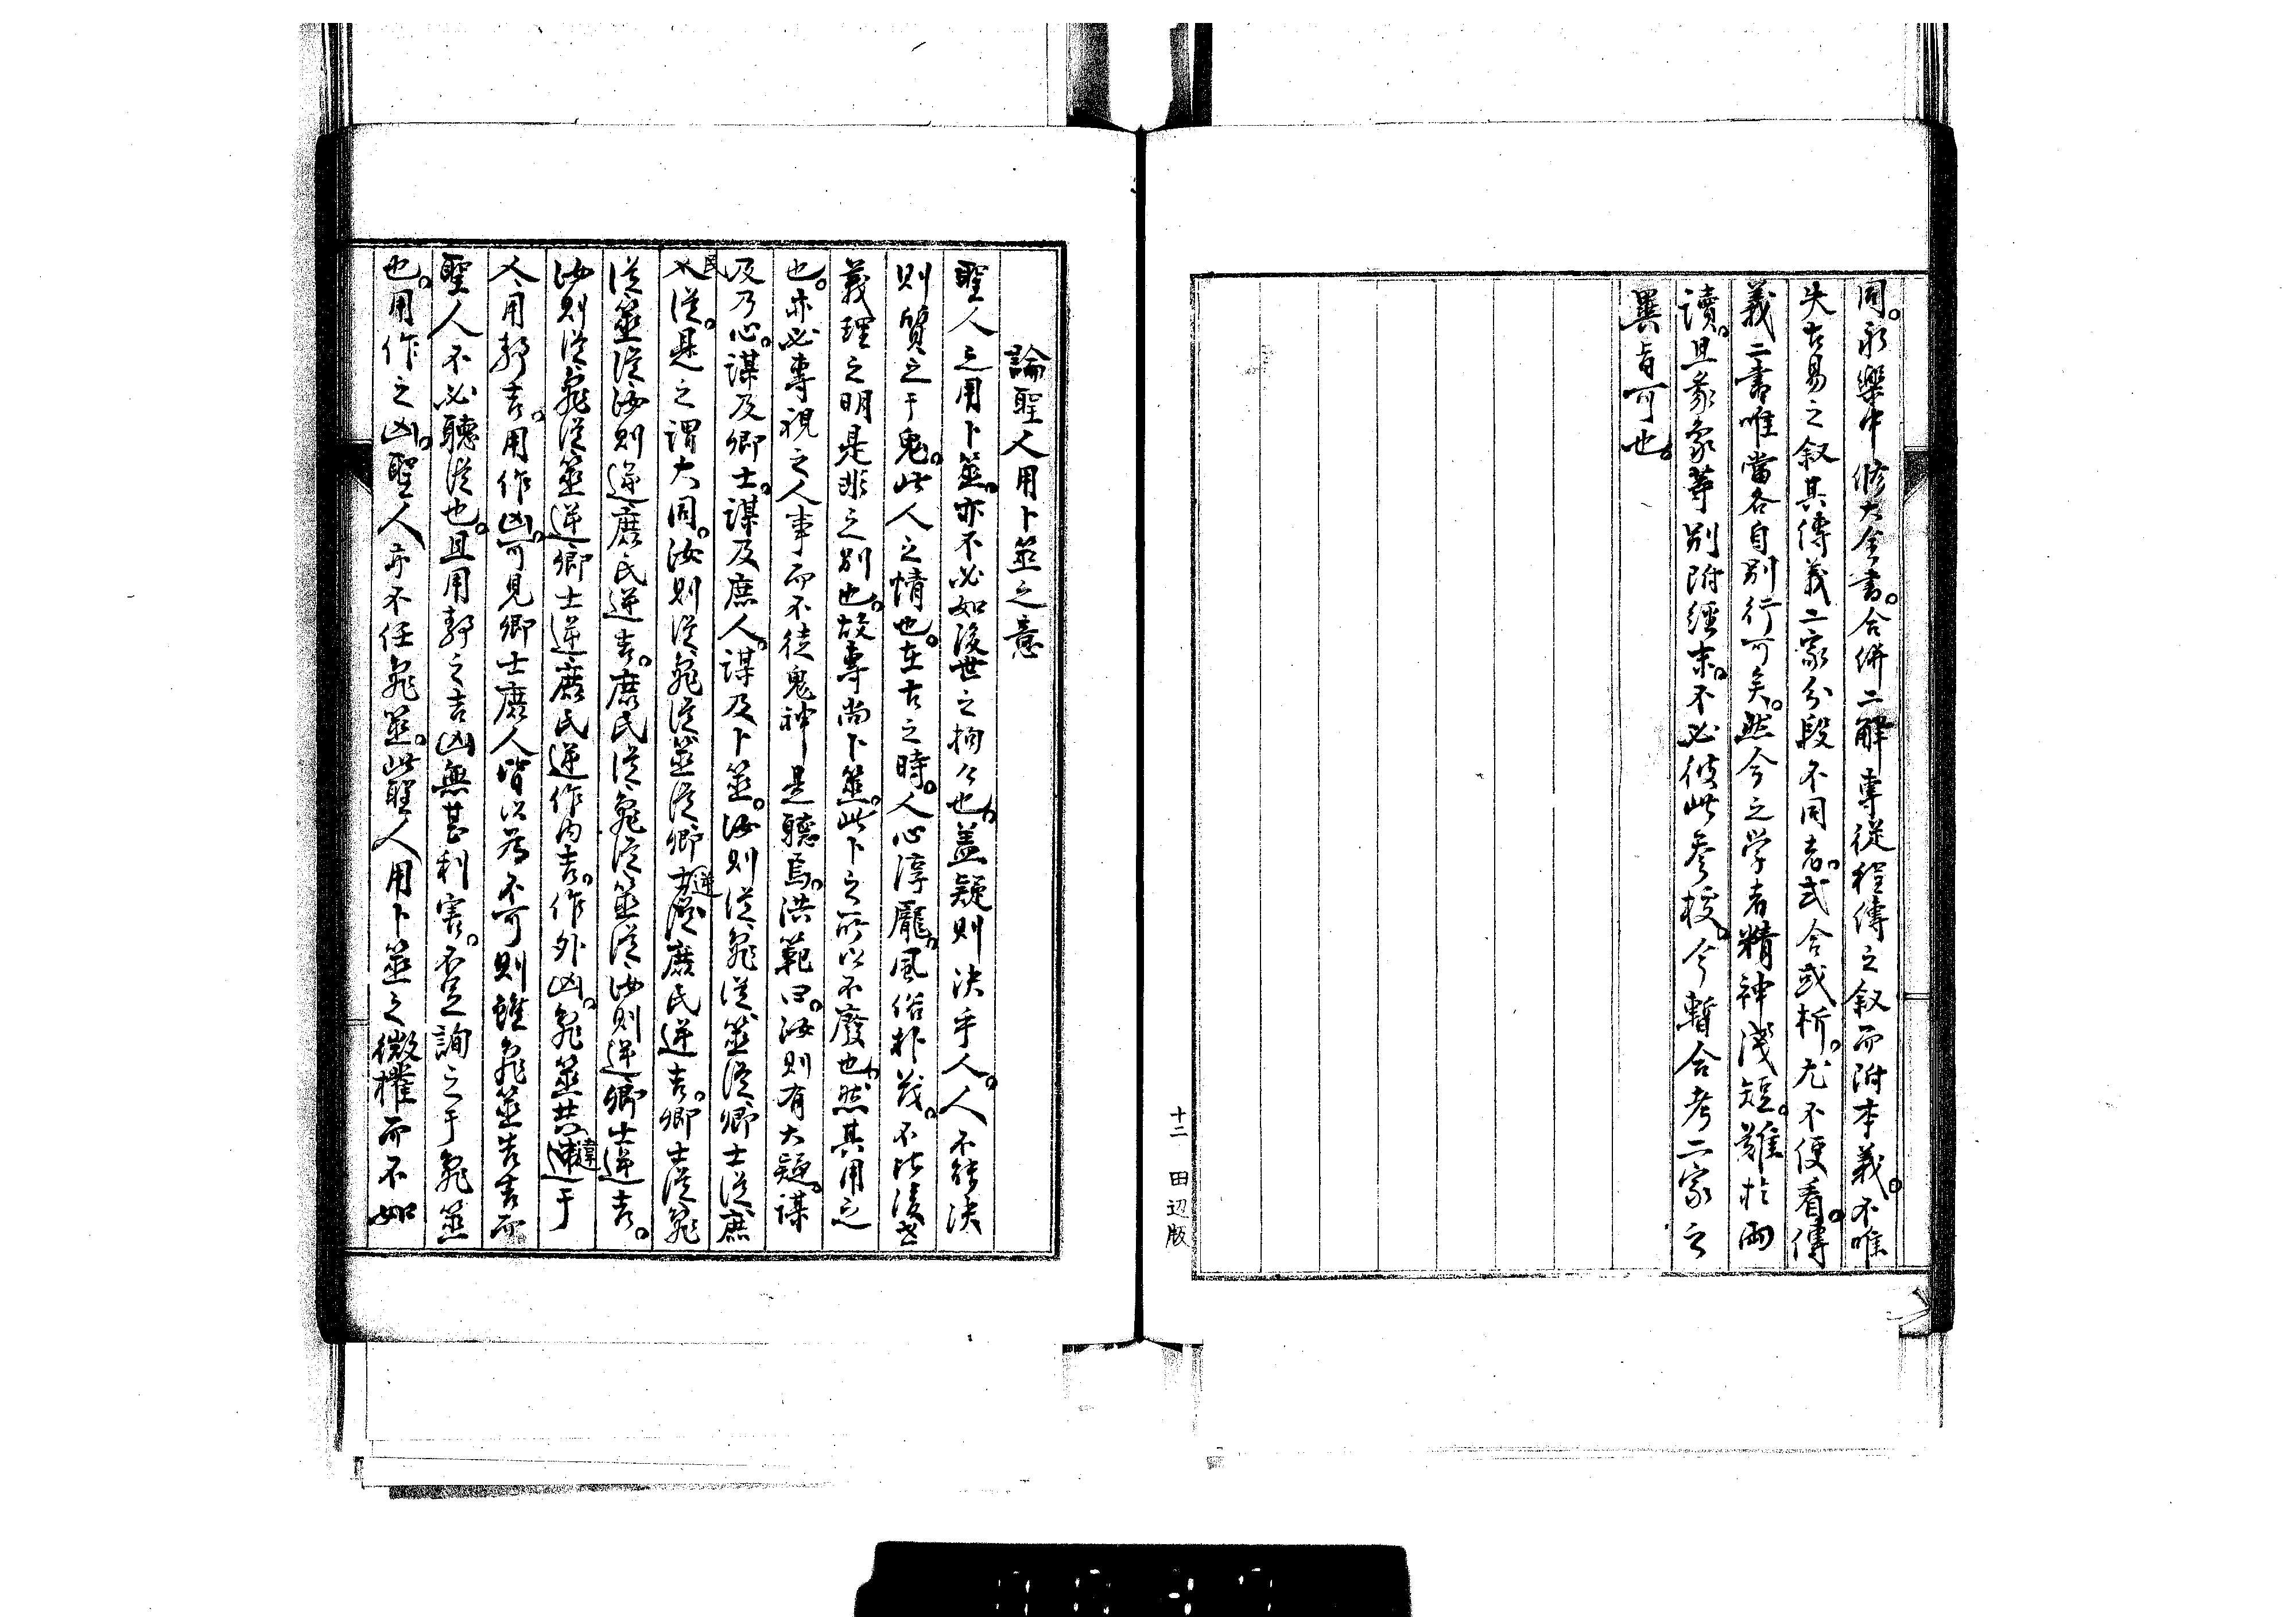 同。永樂中脩大全書。合併二解専從程傳之叙而附本義。不唯
失古易之叙其傳義二家分段不同者。或合或析。尤不便看。傳
義二書唯當各自別行可矣。然今之学者精神淺短。難於両
讀。且彖象等別附經末。不必彼此參挍。今暫合考二家之
異旨可也。
十二 田辺版
論聖人用卜筮之意
聖人之用卜筮。亦不必如後世之拘々也。盖疑則決乎人。人不能決
則質之于鬼。此人之情也。在古之時。人心淳龐。風俗朴茂。不比後世
義理之明是非之別也。故専尚卜筮。此卜之所以不廢也。然其用之
也。亦必専視之人事而不徒鬼神是聽焉。洪範曰。汝則有大疑。謀
及乃心。謀及卿士。謀及庶人。謀及卜筮。汝則從龜從筮從卿士從庶
民從。是之謂大同。汝則從龜從筮從卿士逆庶民逆吉。卿士從龜
從筮從汝則逆庶民逆吉。庶民從龜從筮從汝則逆卿士逆吉。
汝則從龜從筮逆卿士逆庶民逆作内吉。作外凶。龜筮共違于
人用静吉。用作凶。可見卿士庶人皆以為不可則雖龜筮告吉而
聖人不必聽從也。且用静之吉凶無甚利害。不足詢之于龜筮
也。用作之凶。聖人亦不任龜筮。此聖人用卜筮之微權而不如